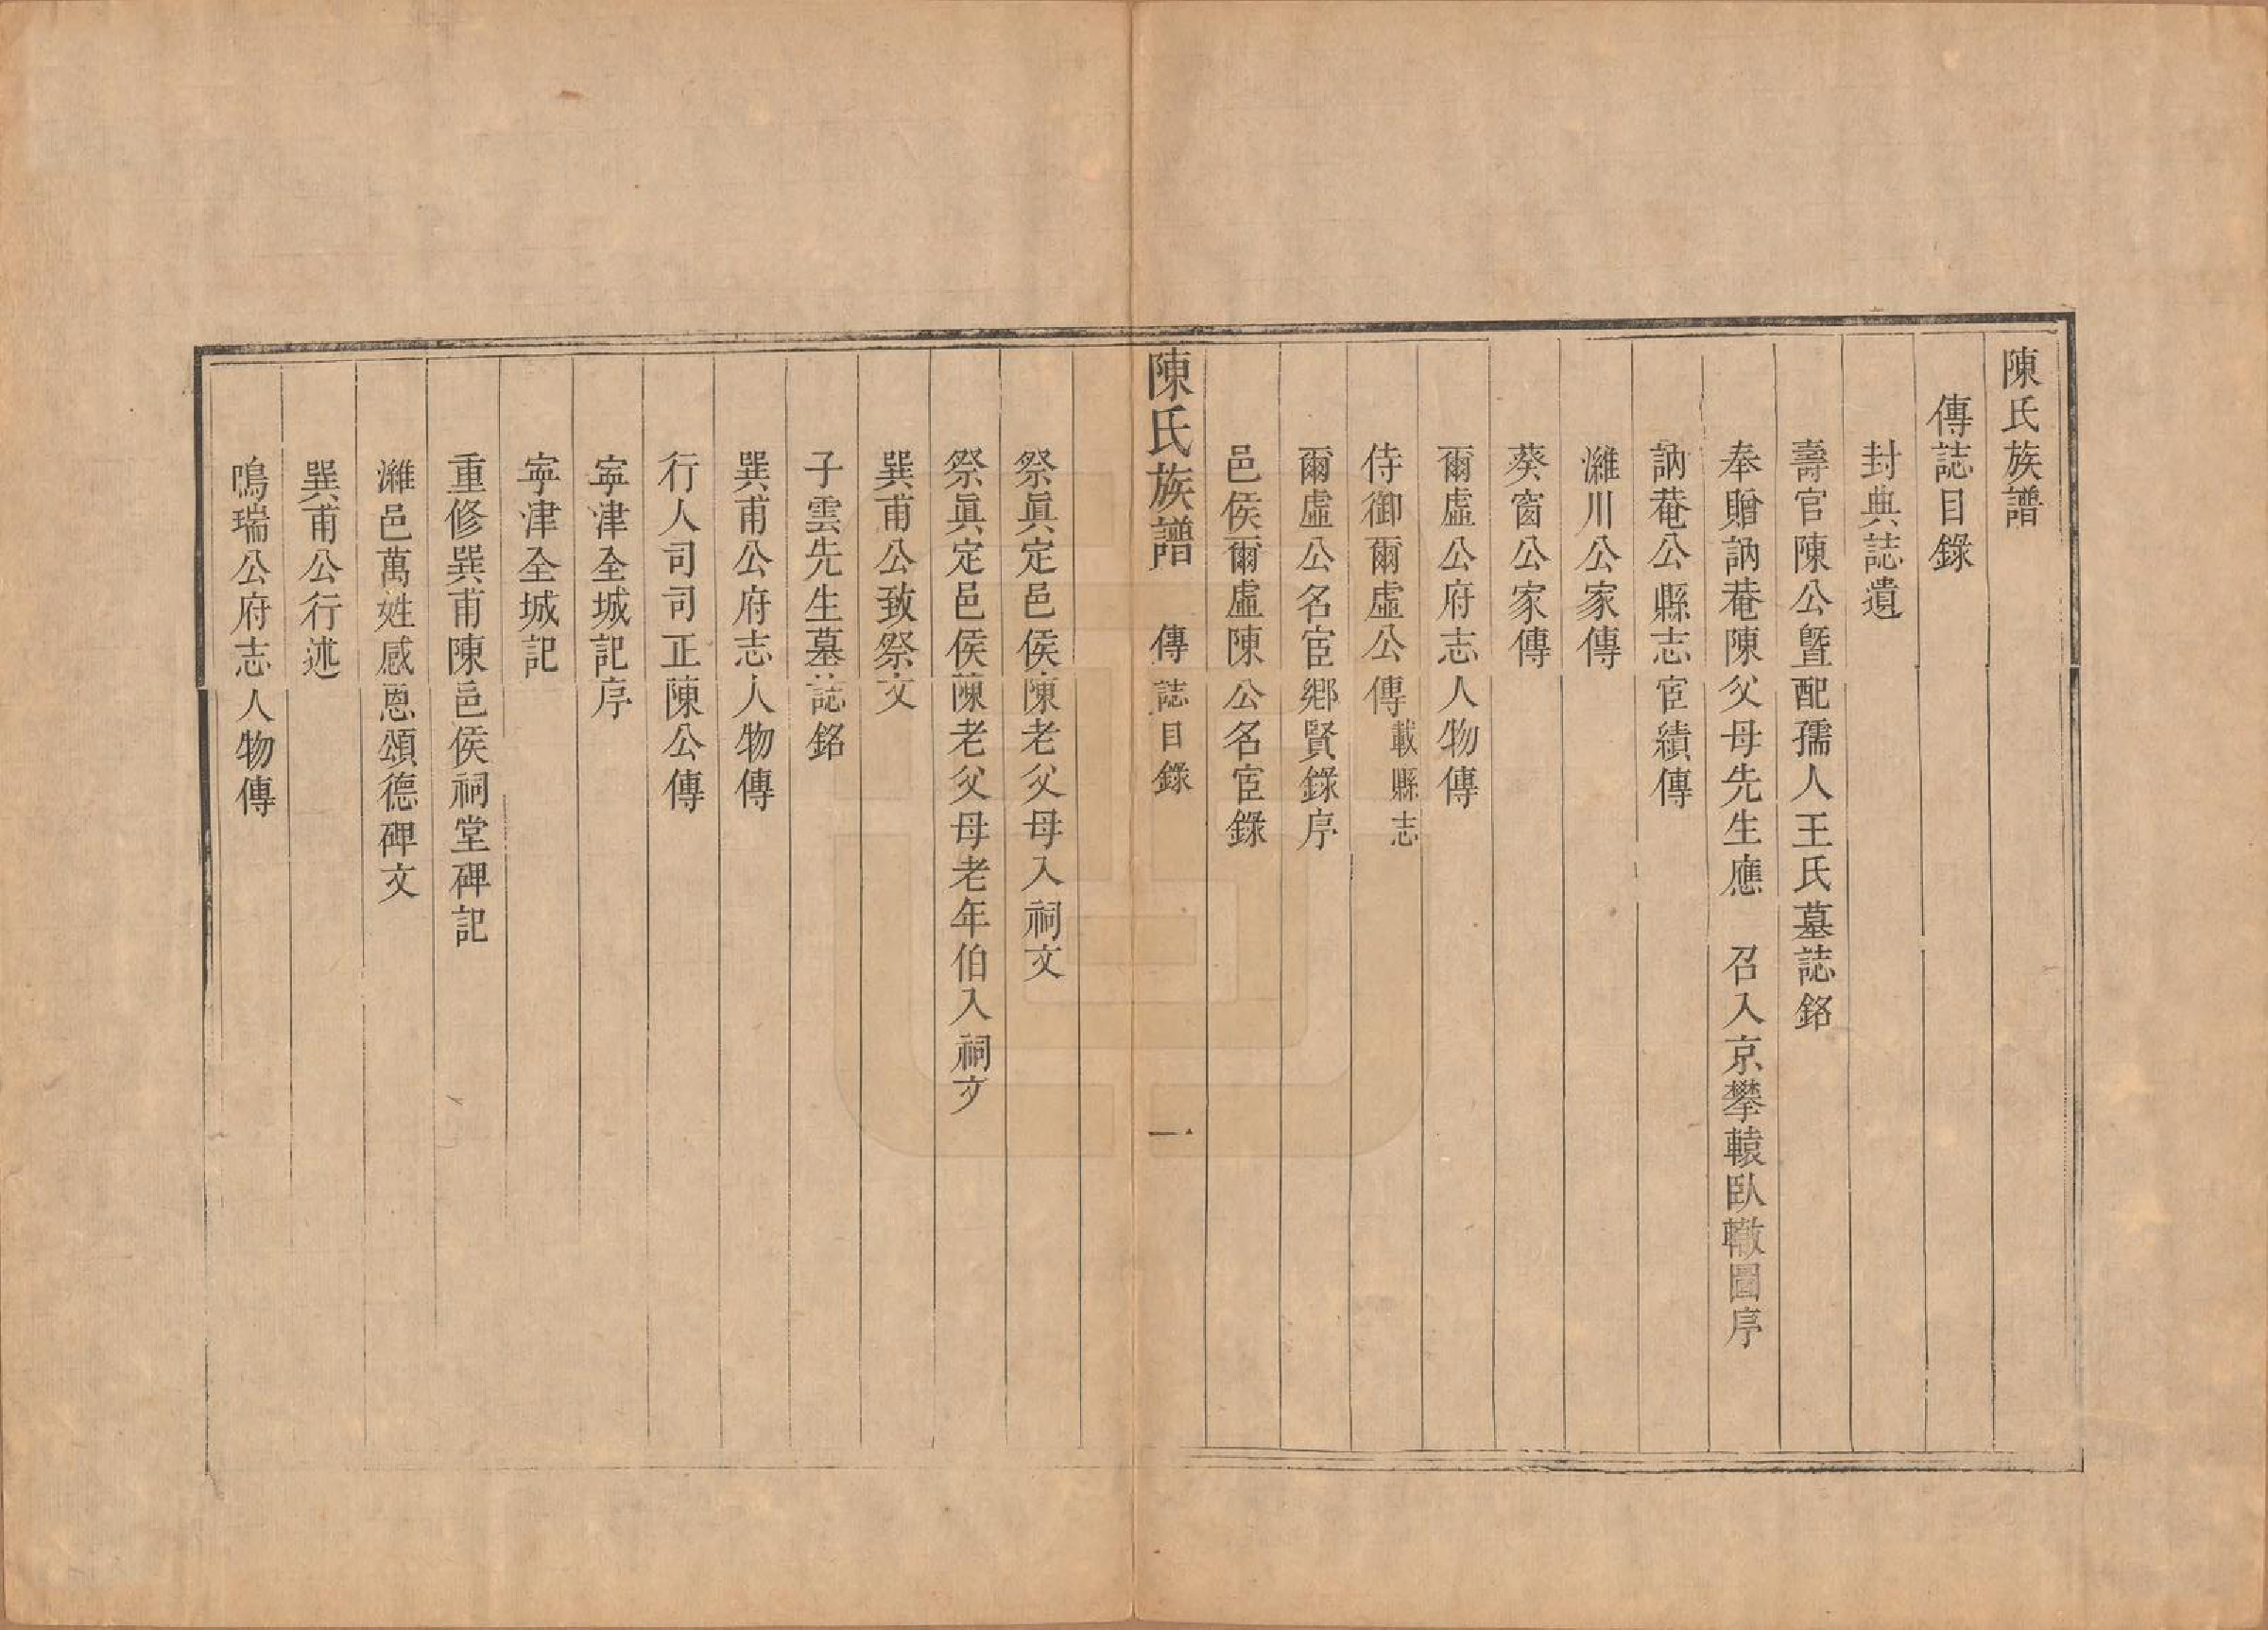 陳氏族譜
傳誌目錄
封典誌遺
壽官陳公曁配孺人王氏墓誌銘
奉贈訥菴陳父母先生應　召入京攀轅臥轍圖序
訥菴公縣志宦績傳
濰川公家傳
葵窗公家傳
爾虛公府志人物傳
侍御爾虛公傳載縣志
爾虛公名宦鄉賢錄序
邑侯爾虛陳公名宦錄
陳氏族譜　傳誌目錄　一
祭眞定邑侯陳老父母入祠文
祭眞定邑侯陳老父母老年伯入祠文
巽甫公致祭文
子雲先生墓誌銘
巽甫公府志人物傳
行人司司正陳公傳
寧津全城記序
寧津全城記
重修巽甫陳邑侯祠堂碑記
濰邑萬姓感恩頌德碑文
巽甫公行述
鳴瑞公府志人物傳